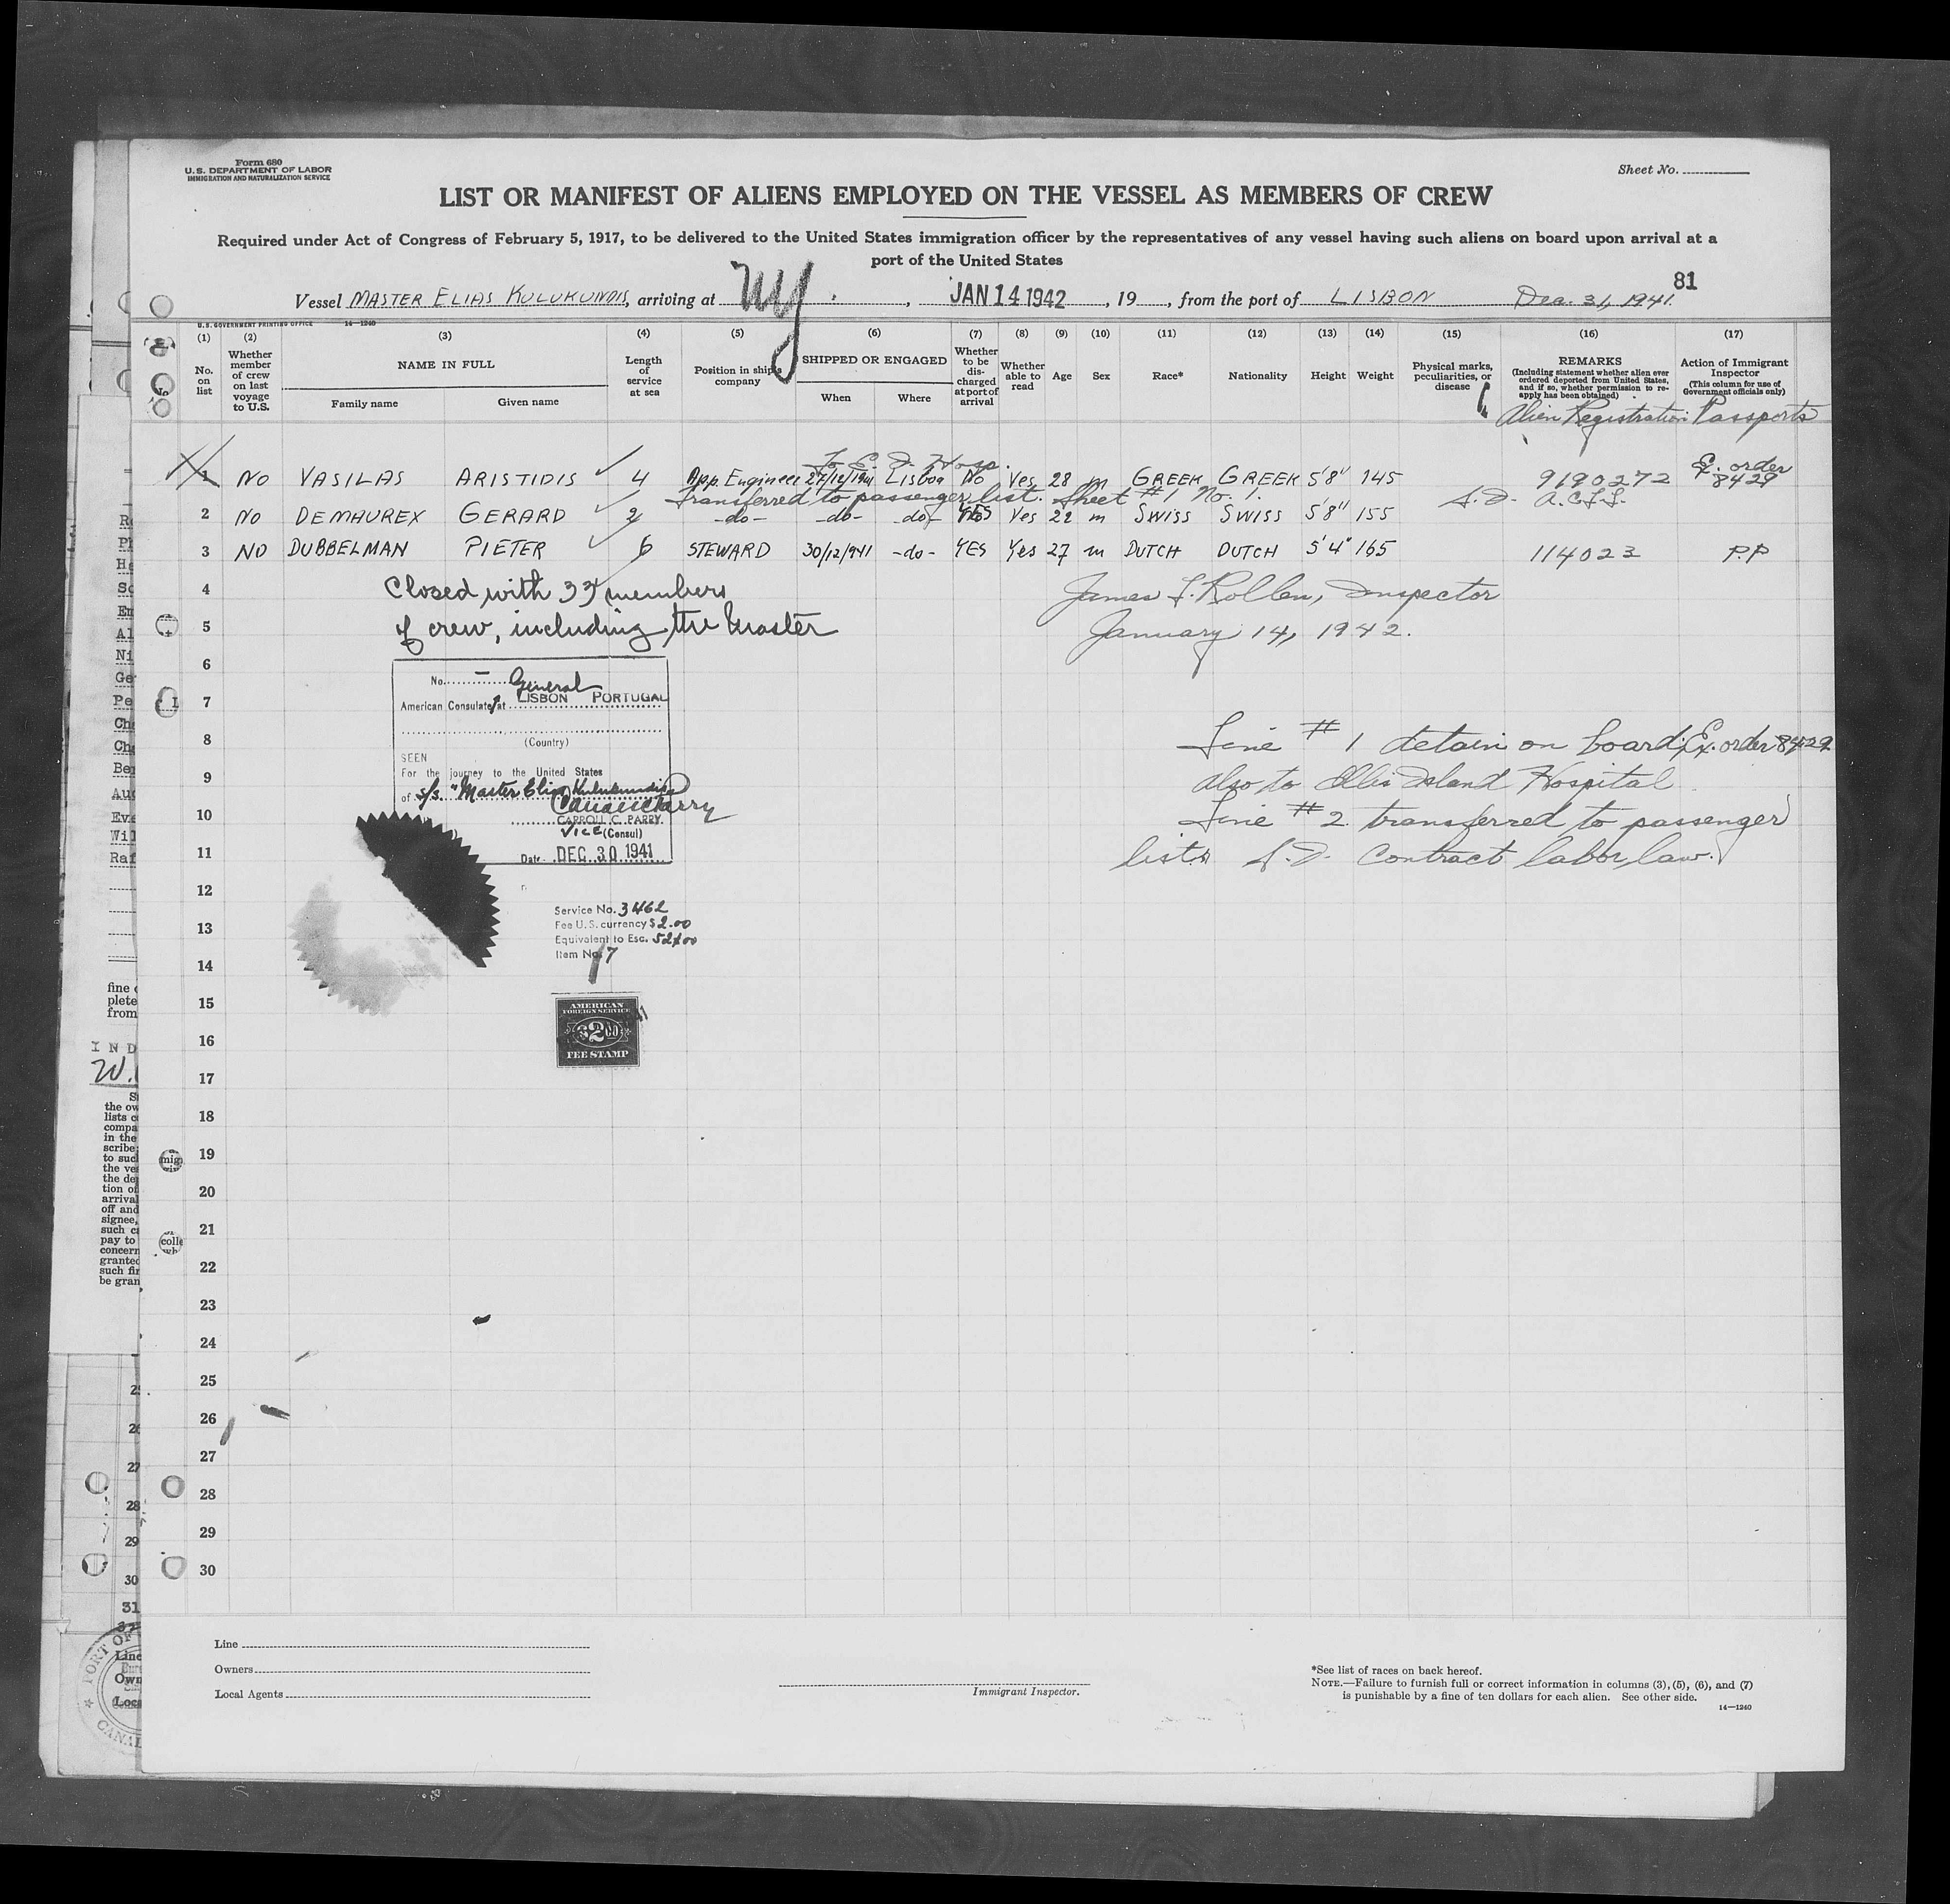 Form 680
U.S. DEPARTMENT OF LABOR
IMMIGRATION AND NATURALIZATION SERVICE
Sheet No.
LIST OR MANIFEST OF ALIENS EMPLOYED ON THE VESSEL AS MEMBERS OF CREW
Required under Act of Congress of February 5, 1917, to be delivered to the United States immigration officer by the representatives of any vessel having such aliens on board upon arrival at a
port of the United States
81
Vessel MASTER ELIAS KULUKUNDIS, arriving at NY, JAN 14 1942, 19, from the port of LISBON Dec. 31, 1941.
U.S. GOVERNMENT PRINTING OFFICE 14—1240
(1) (2) (3) (4) (5) (6) (7) (8) (9) (10) (11) (12) (13) (14) (15) (16) (17)
No. on list
Whether member of crew on last voyage to U.S.
NAME IN FULL
Family name Given name
Length of service at sea
Position in ship's company
SHIPPED OR ENGAGED
When Where
Whether to be discharged at port of arrival
Whether able to read
Age
Sex
Race*
Nationality
Height
Weight
Physical marks, peculiarities, or disease
REMARKS
(Including statement whether alien ever ordered deported from United States, and if so, whether permission to reapply has been obtained)
Action of Immigrant Inspector
(This column for use of Government officials only)
Alien Registration Passports
To E. I. Hosp.
1 NO VASILAS ARISTIDIS 4 App. Engineer 27/12/1941 Lisboa No Yes 28 m GREEK GREEK 5'8" 145 9190272 Ex. order 8429
Transferred to passenger list. Sheet #1 No. 1.
2 NO DEMAUREX GERARD 2 -do- -do- -do- YES Yes 22 m SWISS SWISS 5'8" 155
3 NO DUBBELMAN PIETER 6 STEWARD 30/12/941 -do- YES Yes 27 m DUTCH DUTCH 5'4" 165 114023 P.P
4 Closed with 33 members
James F. Rollen, Inspector
5 of crew, including the Master
January 14, 1942.
6
No. — General
7
American Consulate at LISBON PORTUGAL
8
(Country)
Line #1 detain on board; Ex. order 8429
SEEN
9
For the journey to the United States
also to Ellis Island Hospital
of s/s. "Master Elias Kulukundis"
10
CARROLL C. PARRY
Line #2 transferred to passenger
VICE (Consul)
11
Date. DEC 30 1941
list. S.I. Contract labor law.
12
Service No. 3462
13
Fee U.S. currency $2.00
Equivalent to Esc. 52$00
Item No. 7
14
15
AMERICAN
FOREIGN SERVICE
$2.00
FEE STAMP
16
17
18
19
20
21
22
23
24
25
26
27
28
29
30
Line
Owners
Local Agents
Immigrant Inspector.
*See list of races on back hereof.
NOTE.—Failure to furnish full or correct information in columns (3), (5), (6), and (7)
is punishable by a fine of ten dollars for each alien. See other side.
14—1240